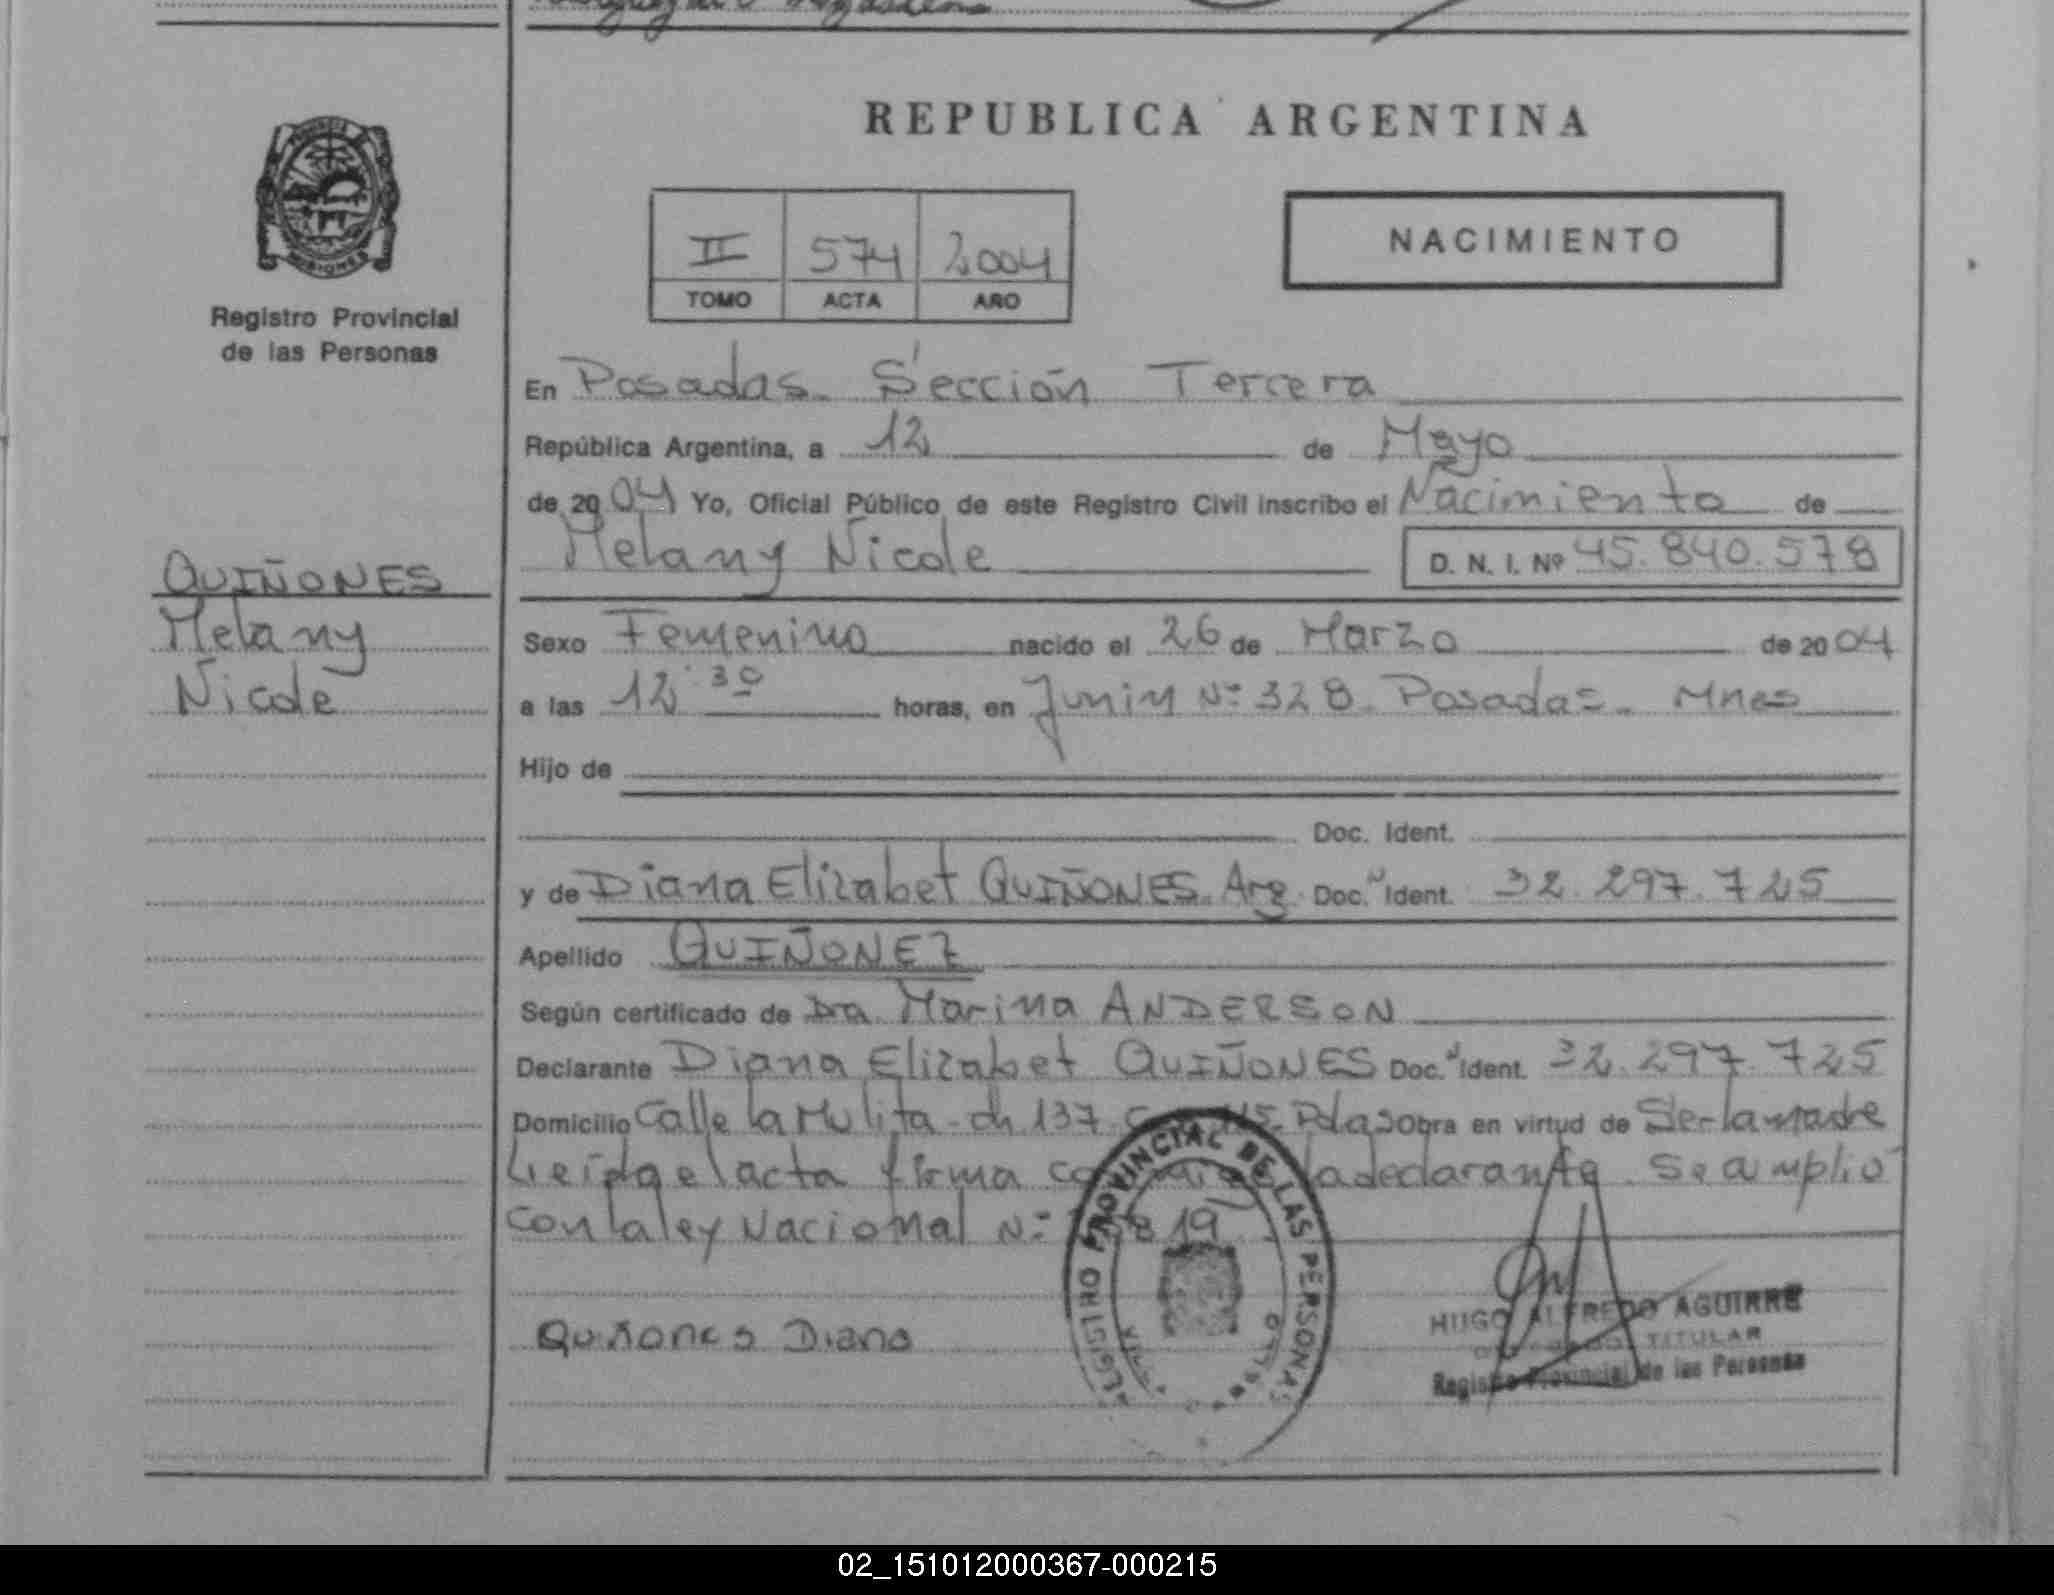 REPUBLICA ARGENTINA
PROVINCIA
MISIONES
Registro Provincial
de las Personas
II 574 2004
TOMO ACTA AÑO
NACIMIENTO
En Posadas. Sección Tercera
República Argentina, a 12 de Mayo
de 2004 Yo, Oficial Público de este Registro Civil inscribo el Nacimiento de
Melany Nicole D. N. I. Nº 45.840.578
QUIÑONES
Melany
Nicole
Sexo Femenino nacido el 26 de Marzo de 2004
a las 12:30 horas, en Junin Nº 328. Posadas. Mnes
Hijo de
Doc. Ident.
y de Diana Elizabet QUIÑONES. Arg. Doc. Ident. 32.297.725
Apellido QUIÑONEZ
Según certificado de Dra. Marina ANDERSON
Declarante Diana Elizabet QUIÑONES Doc. Ident. 32.297.725
Domicilio Calle la Mulita - ch. 137 Pdas obra en virtud de Ser la madre
Leída el acta firma la declarante. Se amplió
con la ley Nacional Nº
Quiñones Diana
REGISTRO PROVINCIAL DE LAS PERSONAS
HUGO ALFREDO AGUIRRE
TITULAR
Registro Provincial de las Personas
02_151012000367-000215